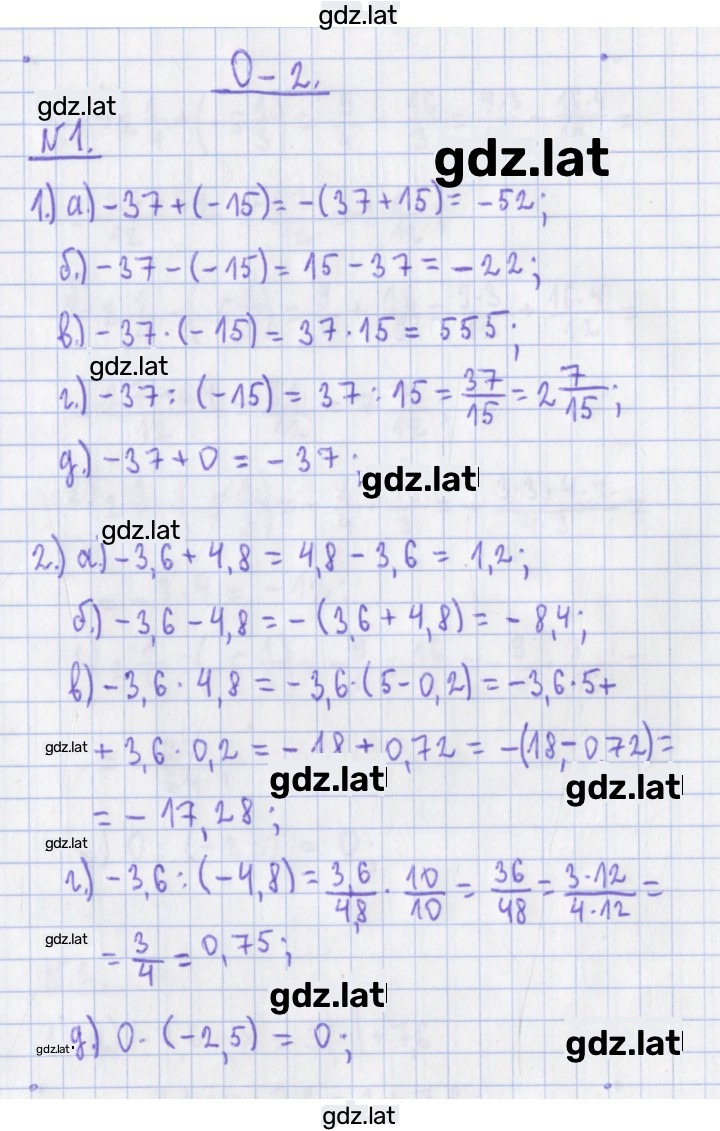 gdz.lat
О – 2.
gdz.lat
N 1.
gdz.lat
1.) а.) – 37 + (– 15) = – (37 + 15) = – 52;
б.) – 37 – (– 15) = 15 – 37 = – 22;
в.) – 37 · (– 15) = 37 · 15 = 555;
gdz.lat
г.) – 37 : (– 15) = 37 : 15 = 37/15 = 2 7/15;
д.) – 37 + 0 = – 37;
gdz.lat
gdz.lat
2.) а.) – 3,6 + 4,8 = 4,8 – 3,6 = 1,2;
б.) – 3,6 – 4,8 = – (3,6 + 4,8) = – 8,4;
в) – 3,6 · 4,8 = – 3,6 · (5 – 0,2) = – 3,6 · 5 +
gdz.lat + 3,6 · 0,2 = – 18 + 0,72 = – (18, – 0 72) =
gdz.lat gdz.lat
= – 17,28;
gdz.lat
г.) – 3,6 : (– 4,8) = 3,6/4,8 · 10/10 = 36/48 = 3·12/4·12 =
gdz.lat
= 3/4 = 0,75;
gdz.lat
д.) 0 · (– 2,5) = 0;
gdz.lat gdz.lat
gdz.lat